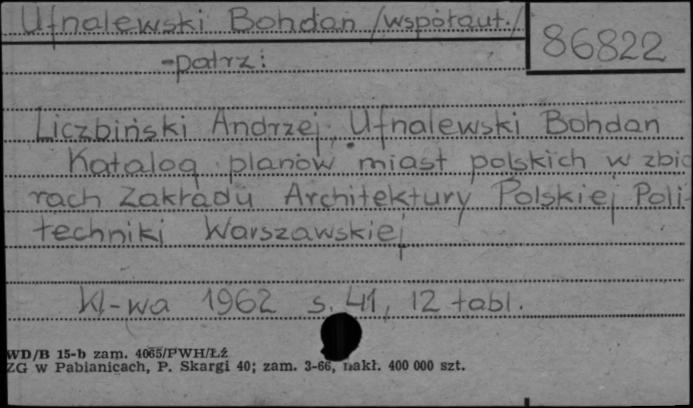 Ufnalewski Bohdan /współaut./
86822
-patrz:
Liczbiński Andrzej, Ufnalewski Bohdan
Katalog planów miast polskich w zbio
rach Zakładu Architektury Polskiej Poli-
techniki Warszawskiej
W-wa 1962 s. 41, 12 tabl.
WD/B 15-b zam. 4065/PWH/Łź
ZG w Pabianicach, P. Skargi 40; zam. 3-66, nakł. 400 000 szt.